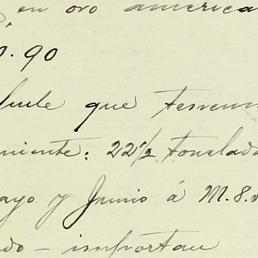 en oro america
0.90
que terren
niente: 22½ tonelada
ayo y Junio á M.8.
do – importan